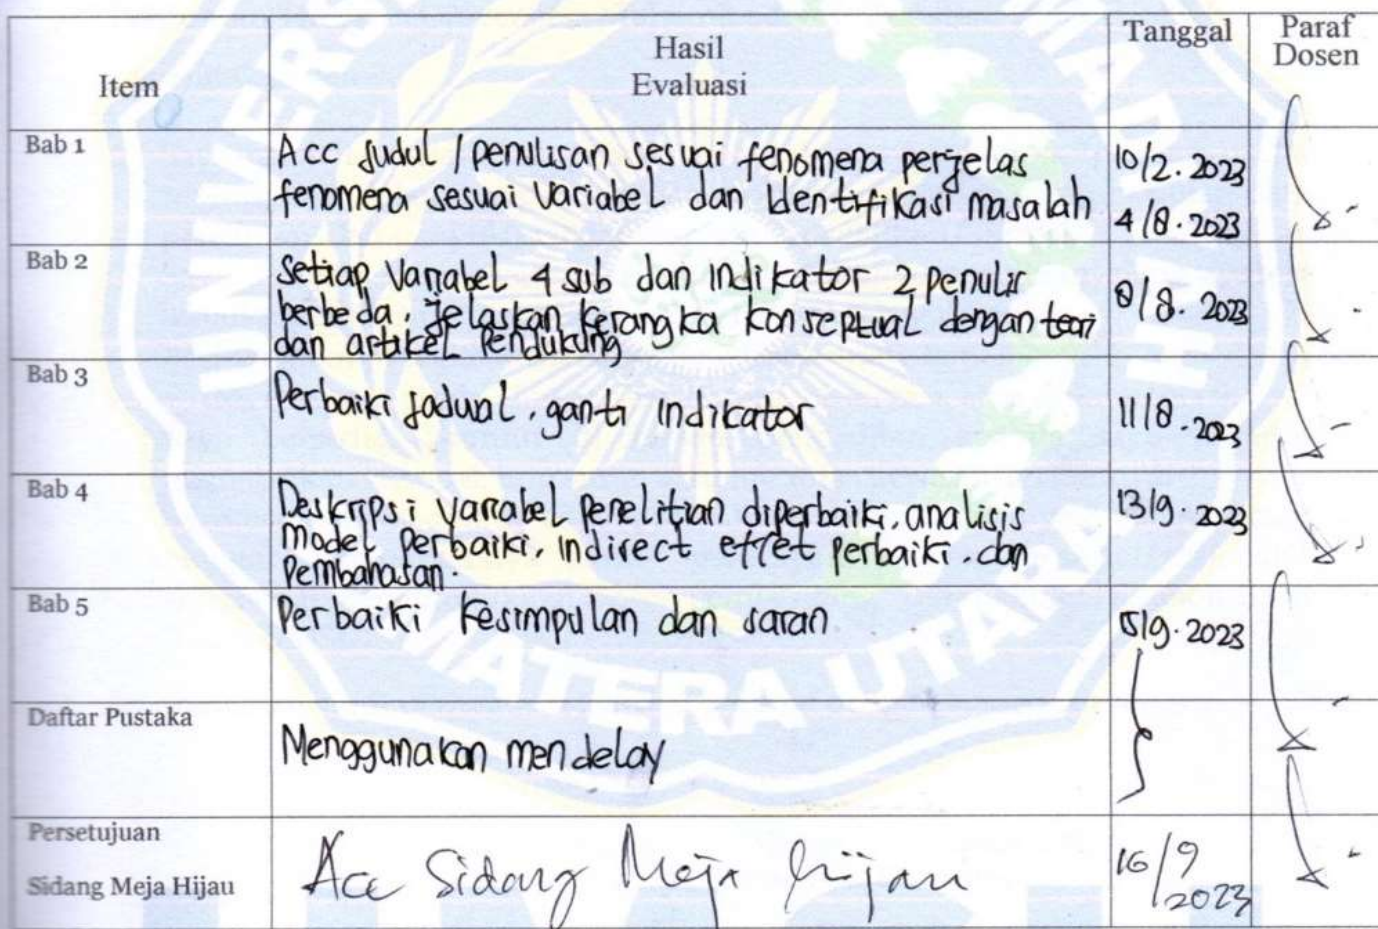 Item
Hasil
Evaluasi
Tanggal
Paraf
Dosen
Bab 1
Acc Judul / penulisan sesuai fenomena perjelas
fenomena sesuai variabel dan identifikasi masalah
10/2. 2023
4/8. 2023
Bab 2
Setiap variabel 4 sub dan indikator 2 penulis
berbeda. Jelaskan kerangka konseptual dengan teori
dan artikel Pendukung
8/8. 2023
Bab 3
Perbaiki Jadual. ganti indikator
11/8. 2023
Bab 4
Deskripsi variabel penelitian diperbaiki, analisis
Model perbaiki. indirect effet perbaiki. dan
Pembahasan.
13/9. 2023
Bab 5
Perbaiki Kesimpulan dan saran
15/9. 2023
Daftar Pustaka
Menggunakan mendelay
Persetujuan
Sidang Meja Hijau
Acc Sidang Meja hijau
16/9
2023
UNIVERS
MADIYAH
SUMATERA UTARA